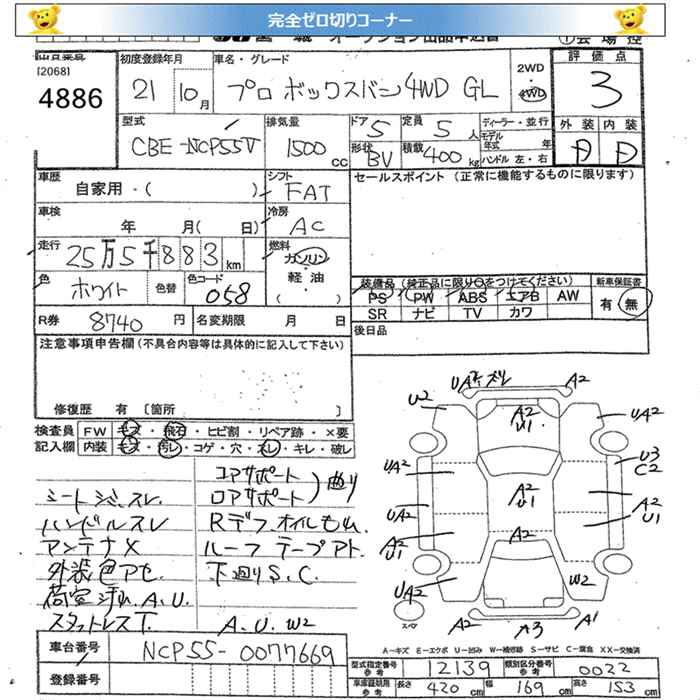 完全ゼロ切りコーナー
出品番号
[2068]
4886
初度登録年月
21 10月
車名・グレード
プロボックスバン4WD GL
2WD
・
4WD
評価点
3
型式
CBE-NCP55V
排気量
1500cc
ドア 5
定員 5人
形状 BV
積載 400kg
ディーラー・並行
モデル年式 年
ハンドル 左・右
外装 内装
D D
車歴
自家用・( )
シフト
FAT
車検
年 月( 日)
冷房
AC
走行
25万5千883km
燃料
ガソリン
・
軽油
( )
色
ホワイト
色替
色コード
058
R券 8740円
名変期限 月 日
セールスポイント (正常に機能するものに限ります)
装備品(純正品に限り○をつけてください)
PS PW ABS エアB AW
SR ナビ TV カワ
新車保証書
有 無
後日品
注意事項申告欄(不具合内容等は具体的に記入して下さい)
修復歴 有 〔箇所 〕
検査員記入欄
FW キズ・飛石・ヒビ割・リペア跡・×要
内装 キズ・汚レ・コゲ・穴・スレ・キレ・破レ
コアサポート
ロアサポート
曲り
シートジミ、スレ
ハンドルスレ
アンテナ×
外装色アセ
荷室汚れ、A.U.
スタットレスT.
Rデフオイルもれ
ルーフテープアト
下廻りS.C.
A.U.W2
UA2 ズレ
A2
U2
A2
U1
UA2
U3
C2
UA2
A2
U1
A2
U1
UA2
A2
U1
A2
UA2
W2
スペア
A2
A3
A1
A-キズ E-エクボ U-凹み W-補修跡 S-サビ C-腐食 XX-交換済
車台番号
NCP55-0077669
登録番号
型式指定番号
参考
12139
類別区分番号
参考
0022
車庫証明用
参考
長さ 420cm
幅 169cm
高さ 153cm